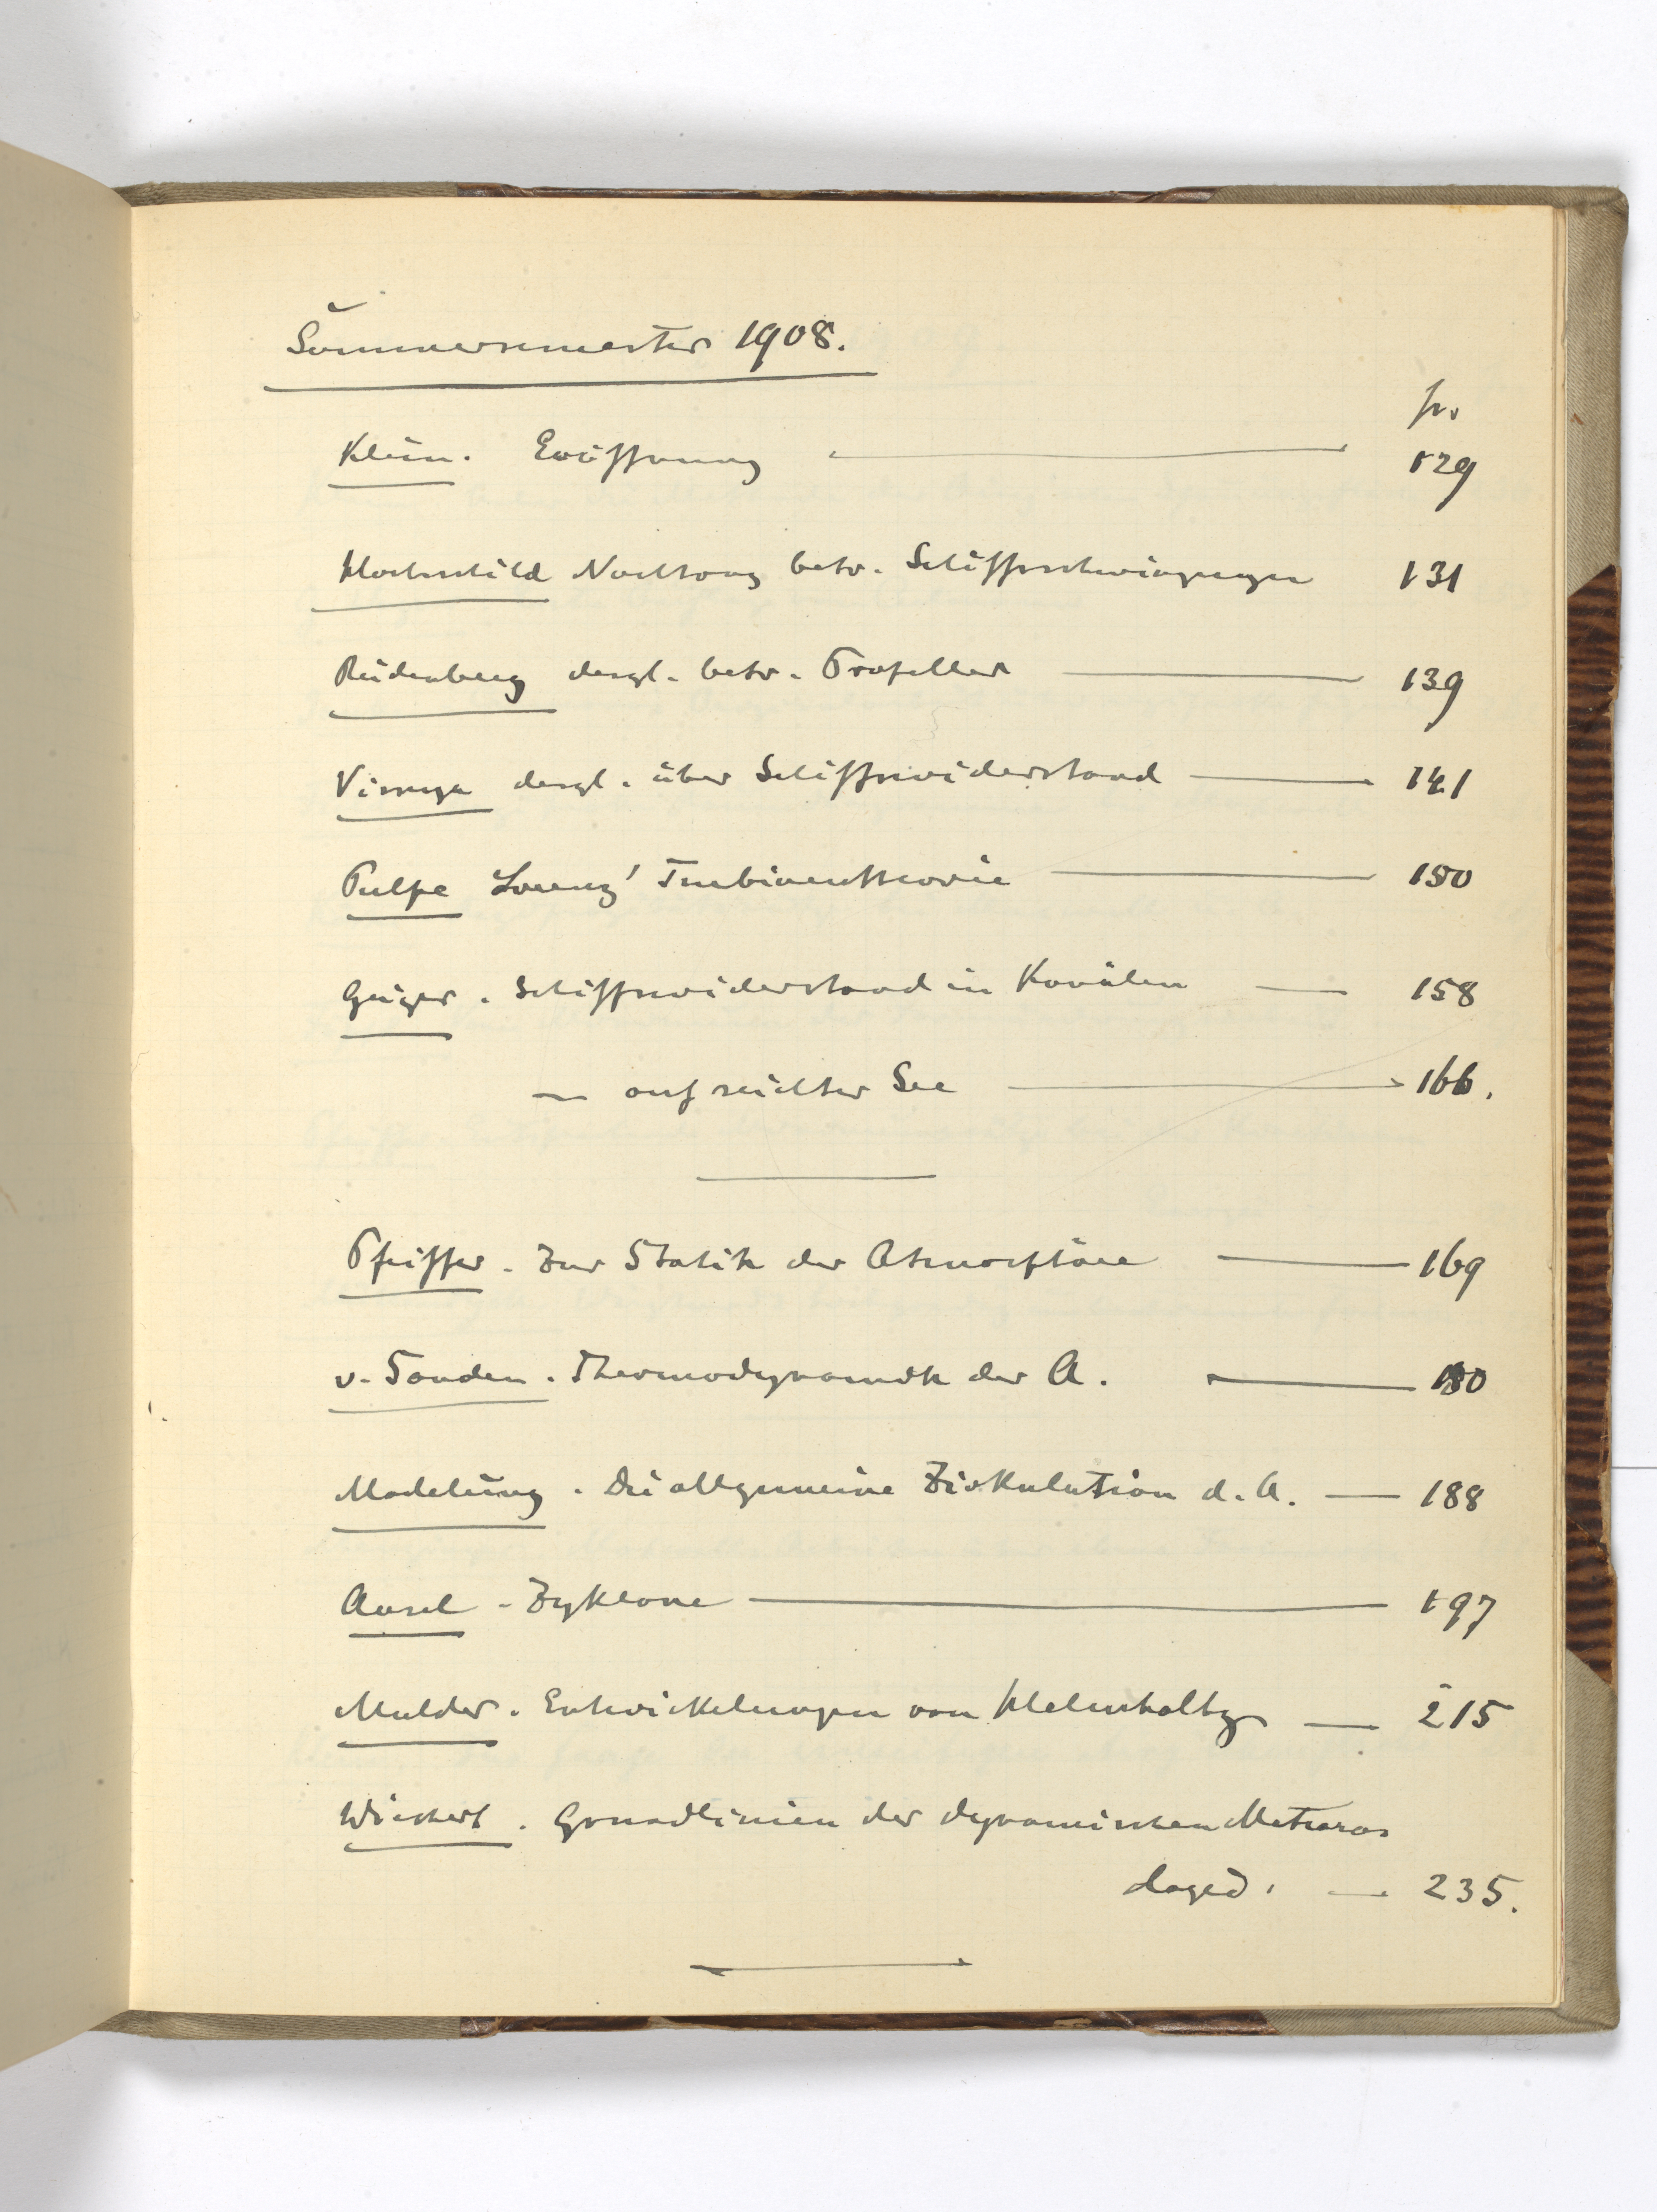 Sommersemester 1908.
p.
Klein. Eröffnung 129
Hochschild Nachtrag betr. Schiffsschwingungen 131
Rüdenberg desgl. betr. Propeller 139
desgl. über Schiffswiderstand 141
Pulpe Lorenz' Turbinentheorie 150
Geiger. Schiffswiderstand in Kanälen 158
— auf seichter See 166.
Pfeiffer. Zur Statik der Atmosphäre 169
v. Sanden. Thermodynamik der A. 180
Madelung. Die allgemeine Zirkulation d. A. — 188
Ansel - Zyklone 197
Mulder. Entwickelungen von Helmholtz — 215
Wiechert. Grundlinien der dynamischen Meteoro-
logie. — 235.